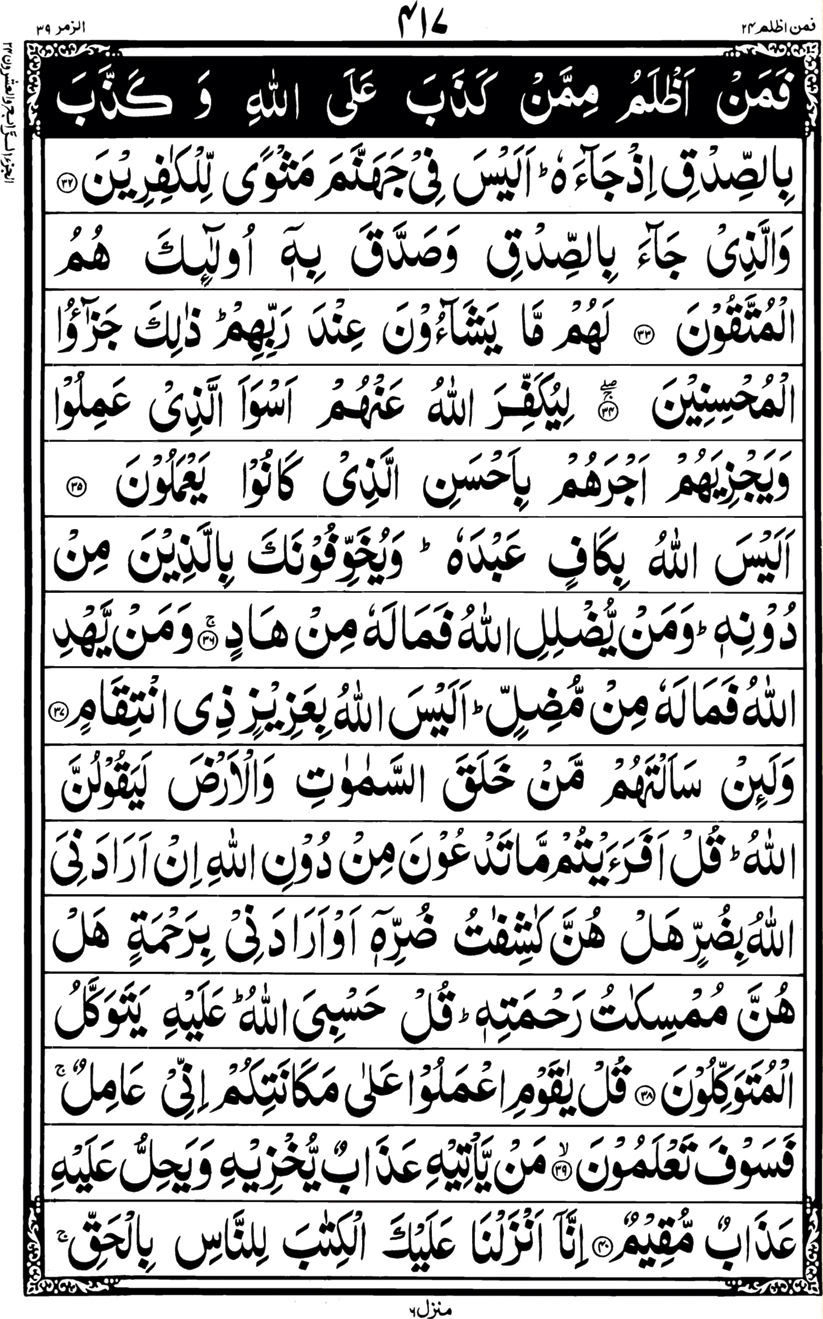 فمن اظلم ۲۴
۴۱۷
الزمر ۳۹
فَمَنْ اَظْلَمُ مِمَّنْ كَذَبَ عَلَى اللّٰهِ وَ كَذَّبَ
بِالصِّدْقِ اِذْ جَآءَهٗ ؕ اَلَيْسَ فِىْ جَهَنَّمَ مَثْوًى لِّلْكٰفِرِيْنَ ۳۲
وَالَّذِىْ جَآءَ بِالصِّدْقِ وَصَدَّقَ بِهٖۤ اُولٰٓئِكَ هُمُ
الْمُتَّقُوْنَ ۳۳ لَهُمْ مَّا يَشَآءُوْنَ عِنْدَ رَبِّهِمْ ؕ ذٰلِكَ جَزٰٓؤُا
الْمُحْسِنِيْنَ ۚۖ ۳۴ لِيُكَفِّرَ اللّٰهُ عَنْهُمْ اَسْوَاَ الَّذِىْ عَمِلُوْا
وَيَجْزِيَهُمْ اَجْرَهُمْ بِاَحْسَنِ الَّذِىْ كَانُوْا يَعْمَلُوْنَ ۳۵
اَلَيْسَ اللّٰهُ بِكَافٍ عَبْدَهٗ ؕ وَيُخَوِّفُوْنَكَ بِالَّذِيْنَ مِنْ
دُوْنِهٖ ؕ وَمَنْ يُّضْلِلِ اللّٰهُ فَمَا لَهٗ مِنْ هَادٍ ۚ ۳۶ وَمَنْ يَّهْدِ
اللّٰهُ فَمَا لَهٗ مِنْ مُّضِلٍّ ؕ اَلَيْسَ اللّٰهُ بِعَزِيْزٍ ذِى انْتِقَامٍ ۳۷
وَلَئِنْ سَاَلْتَهُمْ مَّنْ خَلَقَ السَّمٰوٰتِ وَالْاَرْضَ لَيَقُوْلُنَّ
اللّٰهُ ؕ قُلْ اَفَرَءَيْتُمْ مَّا تَدْعُوْنَ مِنْ دُوْنِ اللّٰهِ اِنْ اَرَادَنِىَ
اللّٰهُ بِضُرٍّ هَلْ هُنَّ كٰشِفٰتُ ضُرِّهٖۤ اَوْ اَرَادَنِىْ بِرَحْمَةٍ هَلْ
هُنَّ مُمْسِكٰتُ رَحْمَتِهٖ ؕ قُلْ حَسْبِىَ اللّٰهُ ؕ عَلَيْهِ يَتَوَكَّلُ
الْمُتَوَكِّلُوْنَ ۳۸ قُلْ يٰقَوْمِ اعْمَلُوْا عَلٰى مَكَانَتِكُمْ اِنِّىْ عَامِلٌ ۚ
فَسَوْفَ تَعْلَمُوْنَ ۙ ۳۹ مَنْ يَّاْتِيْهِ عَذَابٌ يُّخْزِيْهِ وَيَحِلُّ عَلَيْهِ
عَذَابٌ مُّقِيْمٌ ۴۰ اِنَّاۤ اَنْزَلْنَا عَلَيْكَ الْكِتٰبَ لِلنَّاسِ بِالْحَقِّ ۚ
منزل ۶
الجزء الرابع والعشرون ۲۴